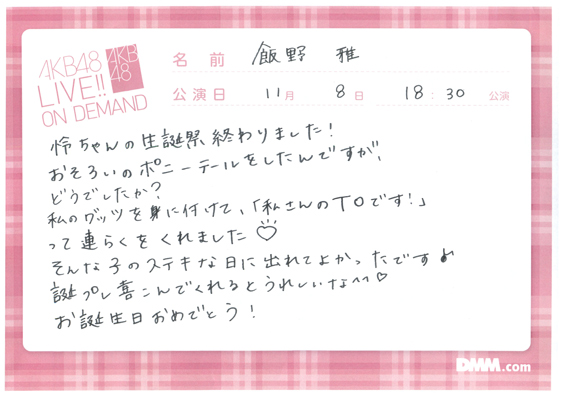 AKB48
LIVE!!
ON DEMAND
AKB
48
名前 飯野 雅
公演日 11月 8日 18:30 公演
怜ちゃんの生誕祭終わりました!
おそろいのポニーテールをしたんですが、
どうでしたか?
私のグッズを身に付けて、「私さんのTOです!」
って連らくをくれました♡
そんな子のステキな日に出れてよかったです♪
誕プレ喜こんでくれるとうれしいな^^♡
お誕生日おめでとう!
DMM.com